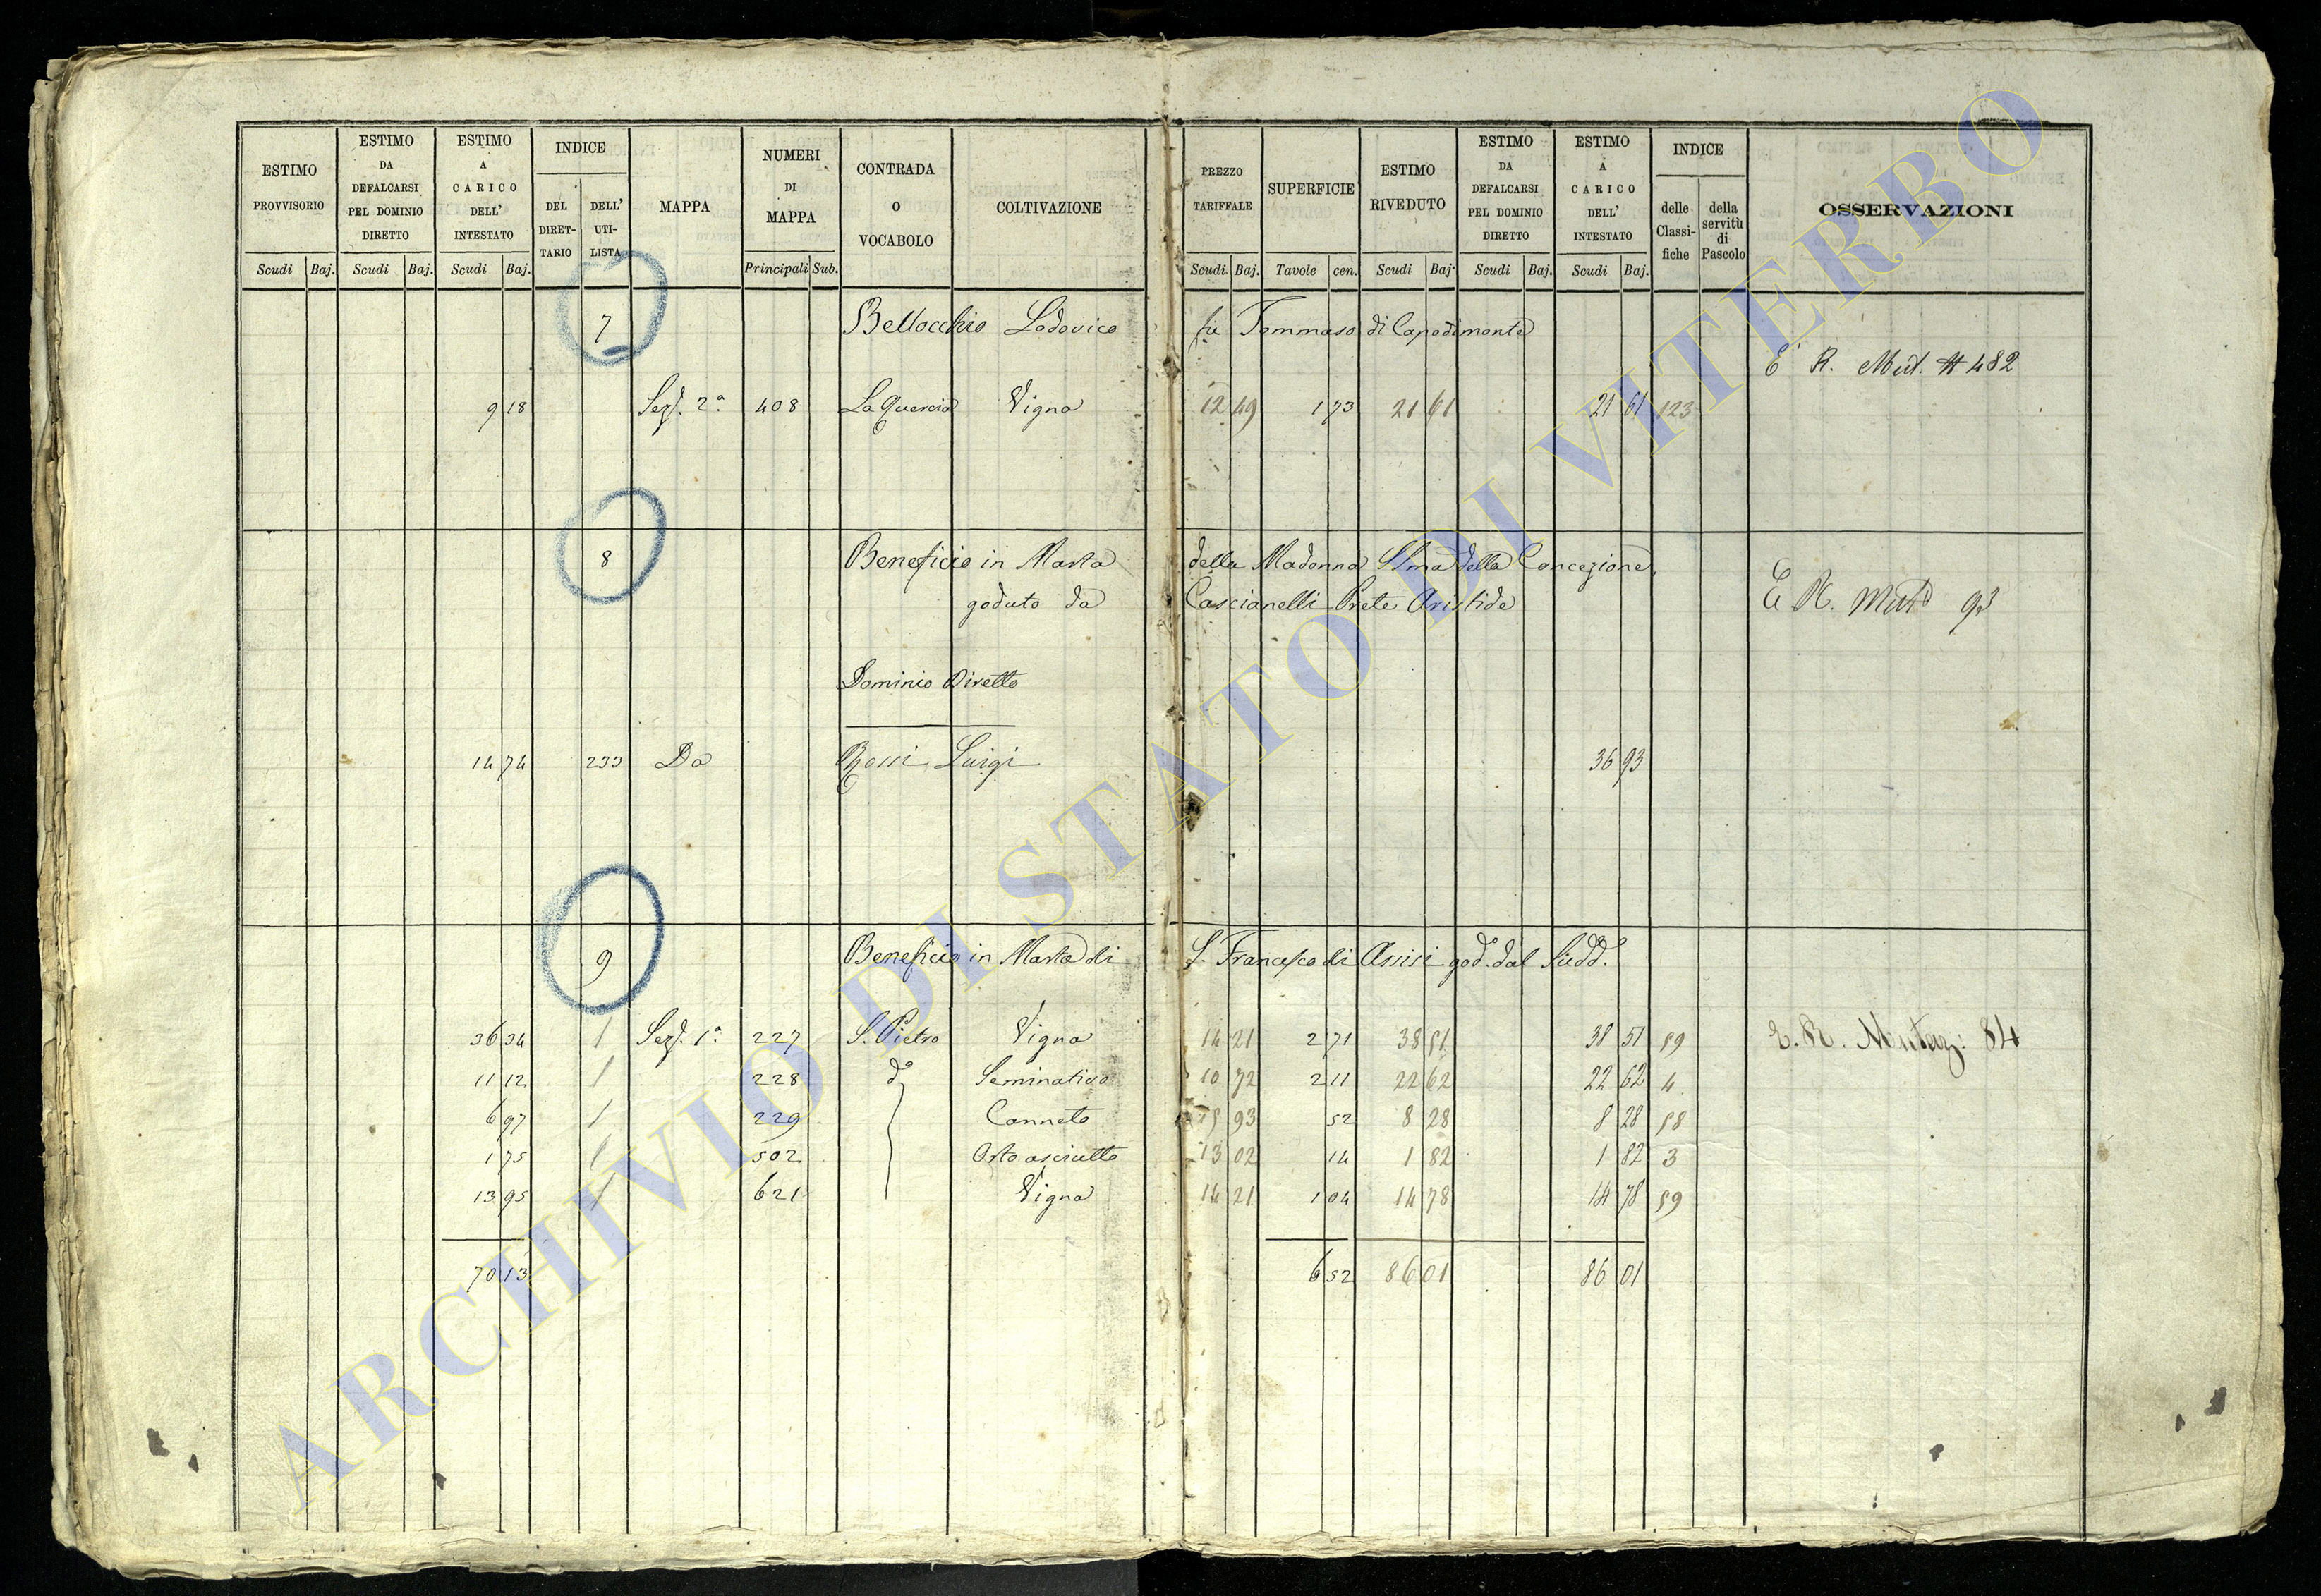 ESTIMO PROVVISORIO
Scudi Baj.
ESTIMO DA DEFALCARSI PEL DOMINIO DIRETTO
Scudi Baj.
ESTIMO A CARICO DELL' INTESTATO
Scudi Baj.
INDICE
DEL DIRET-TARIO
DELL' UTI-LISTA
MAPPA
NUMERI DI MAPPA
Principali Sub.
CONTRADA O VOCABOLO
COLTIVAZIONE
PREZZO TARIFFALE
Scudi Baj.
SUPERFICIE
Tavole cen.
ESTIMO RIVEDUTO
Scudi Baj.
ESTIMO DA DEFALCARSI PEL DOMINIO DIRETTO
Scudi Baj.
ESTIMO A CARICO DELL' INTESTATO
Scudi Baj.
INDICE
delle Classi-fiche
della servitù di Pascolo
OSSERVAZIONI
7 Bellocchio Lodovico fu Tommaso di Capodimonte
E R. Mut. # 482
9 18 Sez. 2ª 408 La Quercia Vigna 12 49 1 73 21 61 21 61 123
8 Beneficio in Marta della Madonna SSma della Concezione
goduto da Cascianelli Prete Aristide
E R. Mut 93
Dominio Diretto
14 74 233 Da Rossi Luigi 36 93
9 Beneficio in Marta di S. Francesco di Assisi god. dal Sudd.
36 34 1 Sez. 1ª 227 S. Pietro Vigna 14 21 2 71 38 51 38 51 59 E. R. Mutaz: 84
11 12 1 228 dº Seminativo 10 72 2 11 22 62 22 62 4
6 97 1 229 Canneto 15 93 52 8 28 8 28 58
1 75 1 502 Orto asciutto 13 02 14 1 82 1 82 3
13 95 1 621 Vigna 14 21 1 04 14 78 14 78 59
70 13 6 52 86 01 86 01
ARCHIVIO DI STATO DI VITERBO